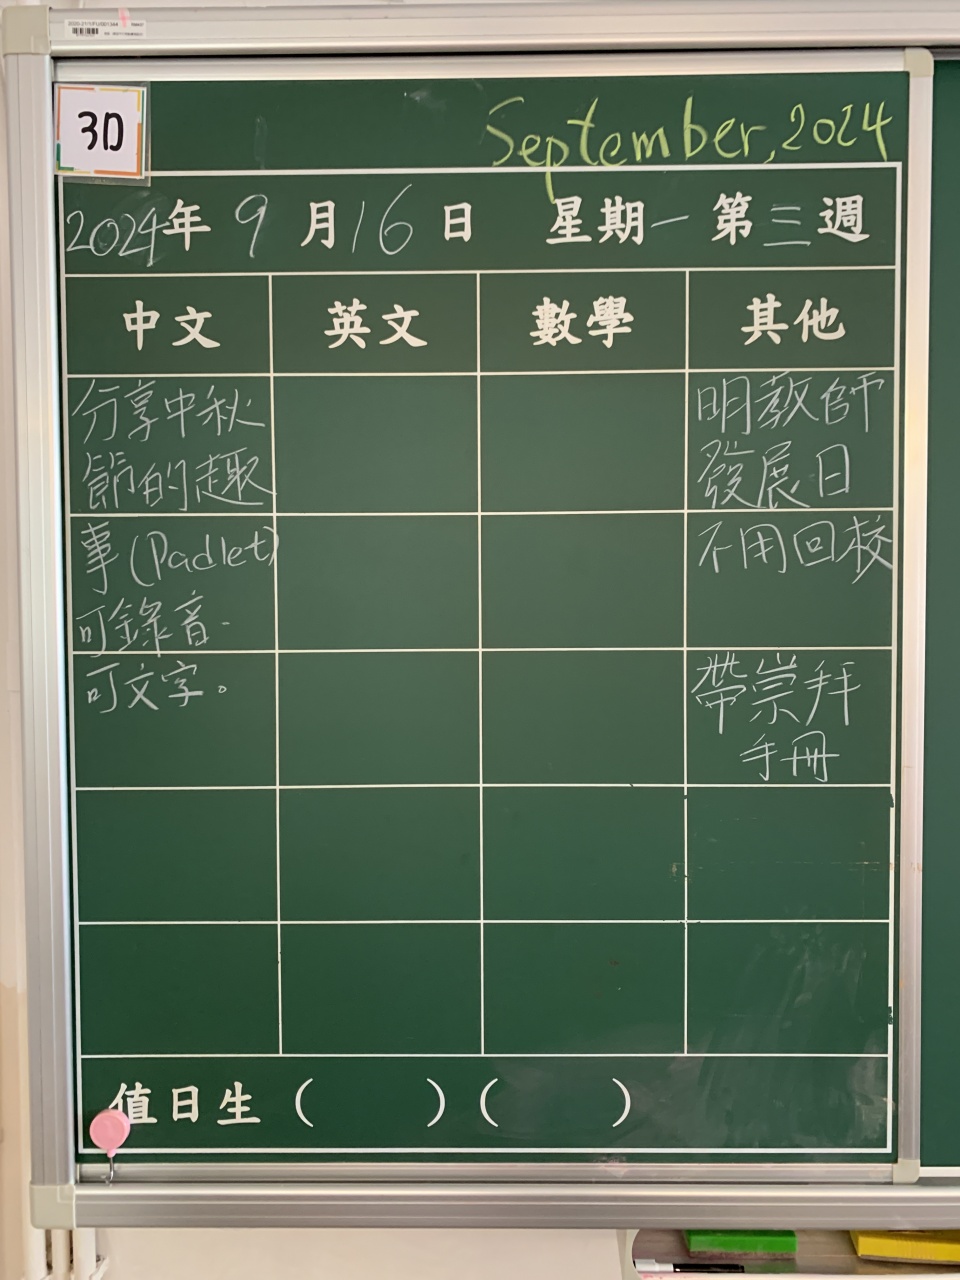 3D
September, 2024
2024年 9月16日 星期一 第三週
中文 英文 數學 其他
分享中秋
節的趣
事(Padlet)
可錄音.
可文字。
明教師
發展日
不用回校
帶崇拜
手冊
值日生 ( ) ( )